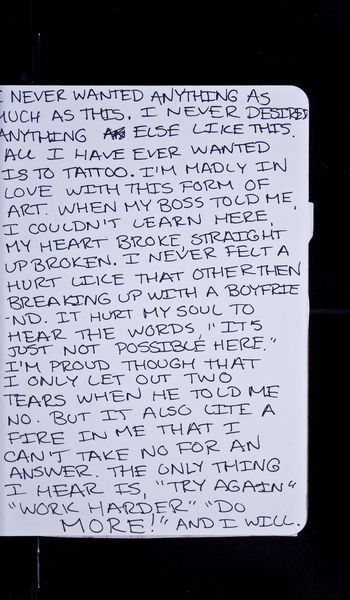 I NEVER WANTED ANYTHING AS
MUCH AS THIS. I NEVER DESIRED
ANYTHING AS ELSE LIKE THIS.
ALL I HAVE EVER WANTED
IS TO TATTOO. I'M MADLY IN
LOVE WITH THIS FORM OF
ART. WHEN MY BOSS TOLD ME,
I COULDN'T LEARN HERE,
MY HEART BROKE, STRAIGHT
UP BROKEN. I NEVER FELT A
HURT LIKE THAT OTHER THEN
BREAKING UP WITH A BOYFRIE
-ND. IT HURT MY SOUL TO
HEAR THE WORDS, "IT'S
JUST NOT POSSIBLE HERE."
I'M PROUD THOUGH THAT
I ONLY LET OUT TWO
TEARS WHEN HE TOLD ME
NO. BUT IT ALSO LITE A
FIRE IN ME THAT I
CAN'T TAKE NO FOR AN
ANSWER. THE ONLY THING
I HEAR IS, "TRY AGAIN"
"WORK HARDER" "DO
MORE!" AND I WILL.